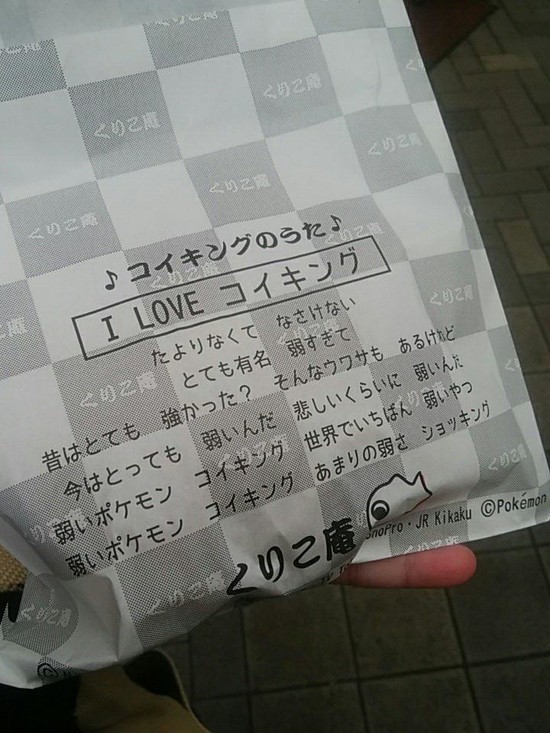 ♪コイキングのうた♪
I LOVE コイキング
たよりなくて なさけない
とても有名 弱すぎて
昔はとても 強かった? そんなウワサも あるけれど
今はとっても 弱いんだ 悲しいくらいに 弱いんだ
弱いポケモン コイキング 世界でいちばん 弱いやつ
弱いポケモン コイキング あまりの弱さ ショッキング
くりこ庵
ShoPro・JR Kikaku ©Pokémon
くりこ庵
くりこ庵
くりこ庵
くりこ庵
くりこ庵
くりこ庵
くりこ庵
くりこ庵
くりこ庵